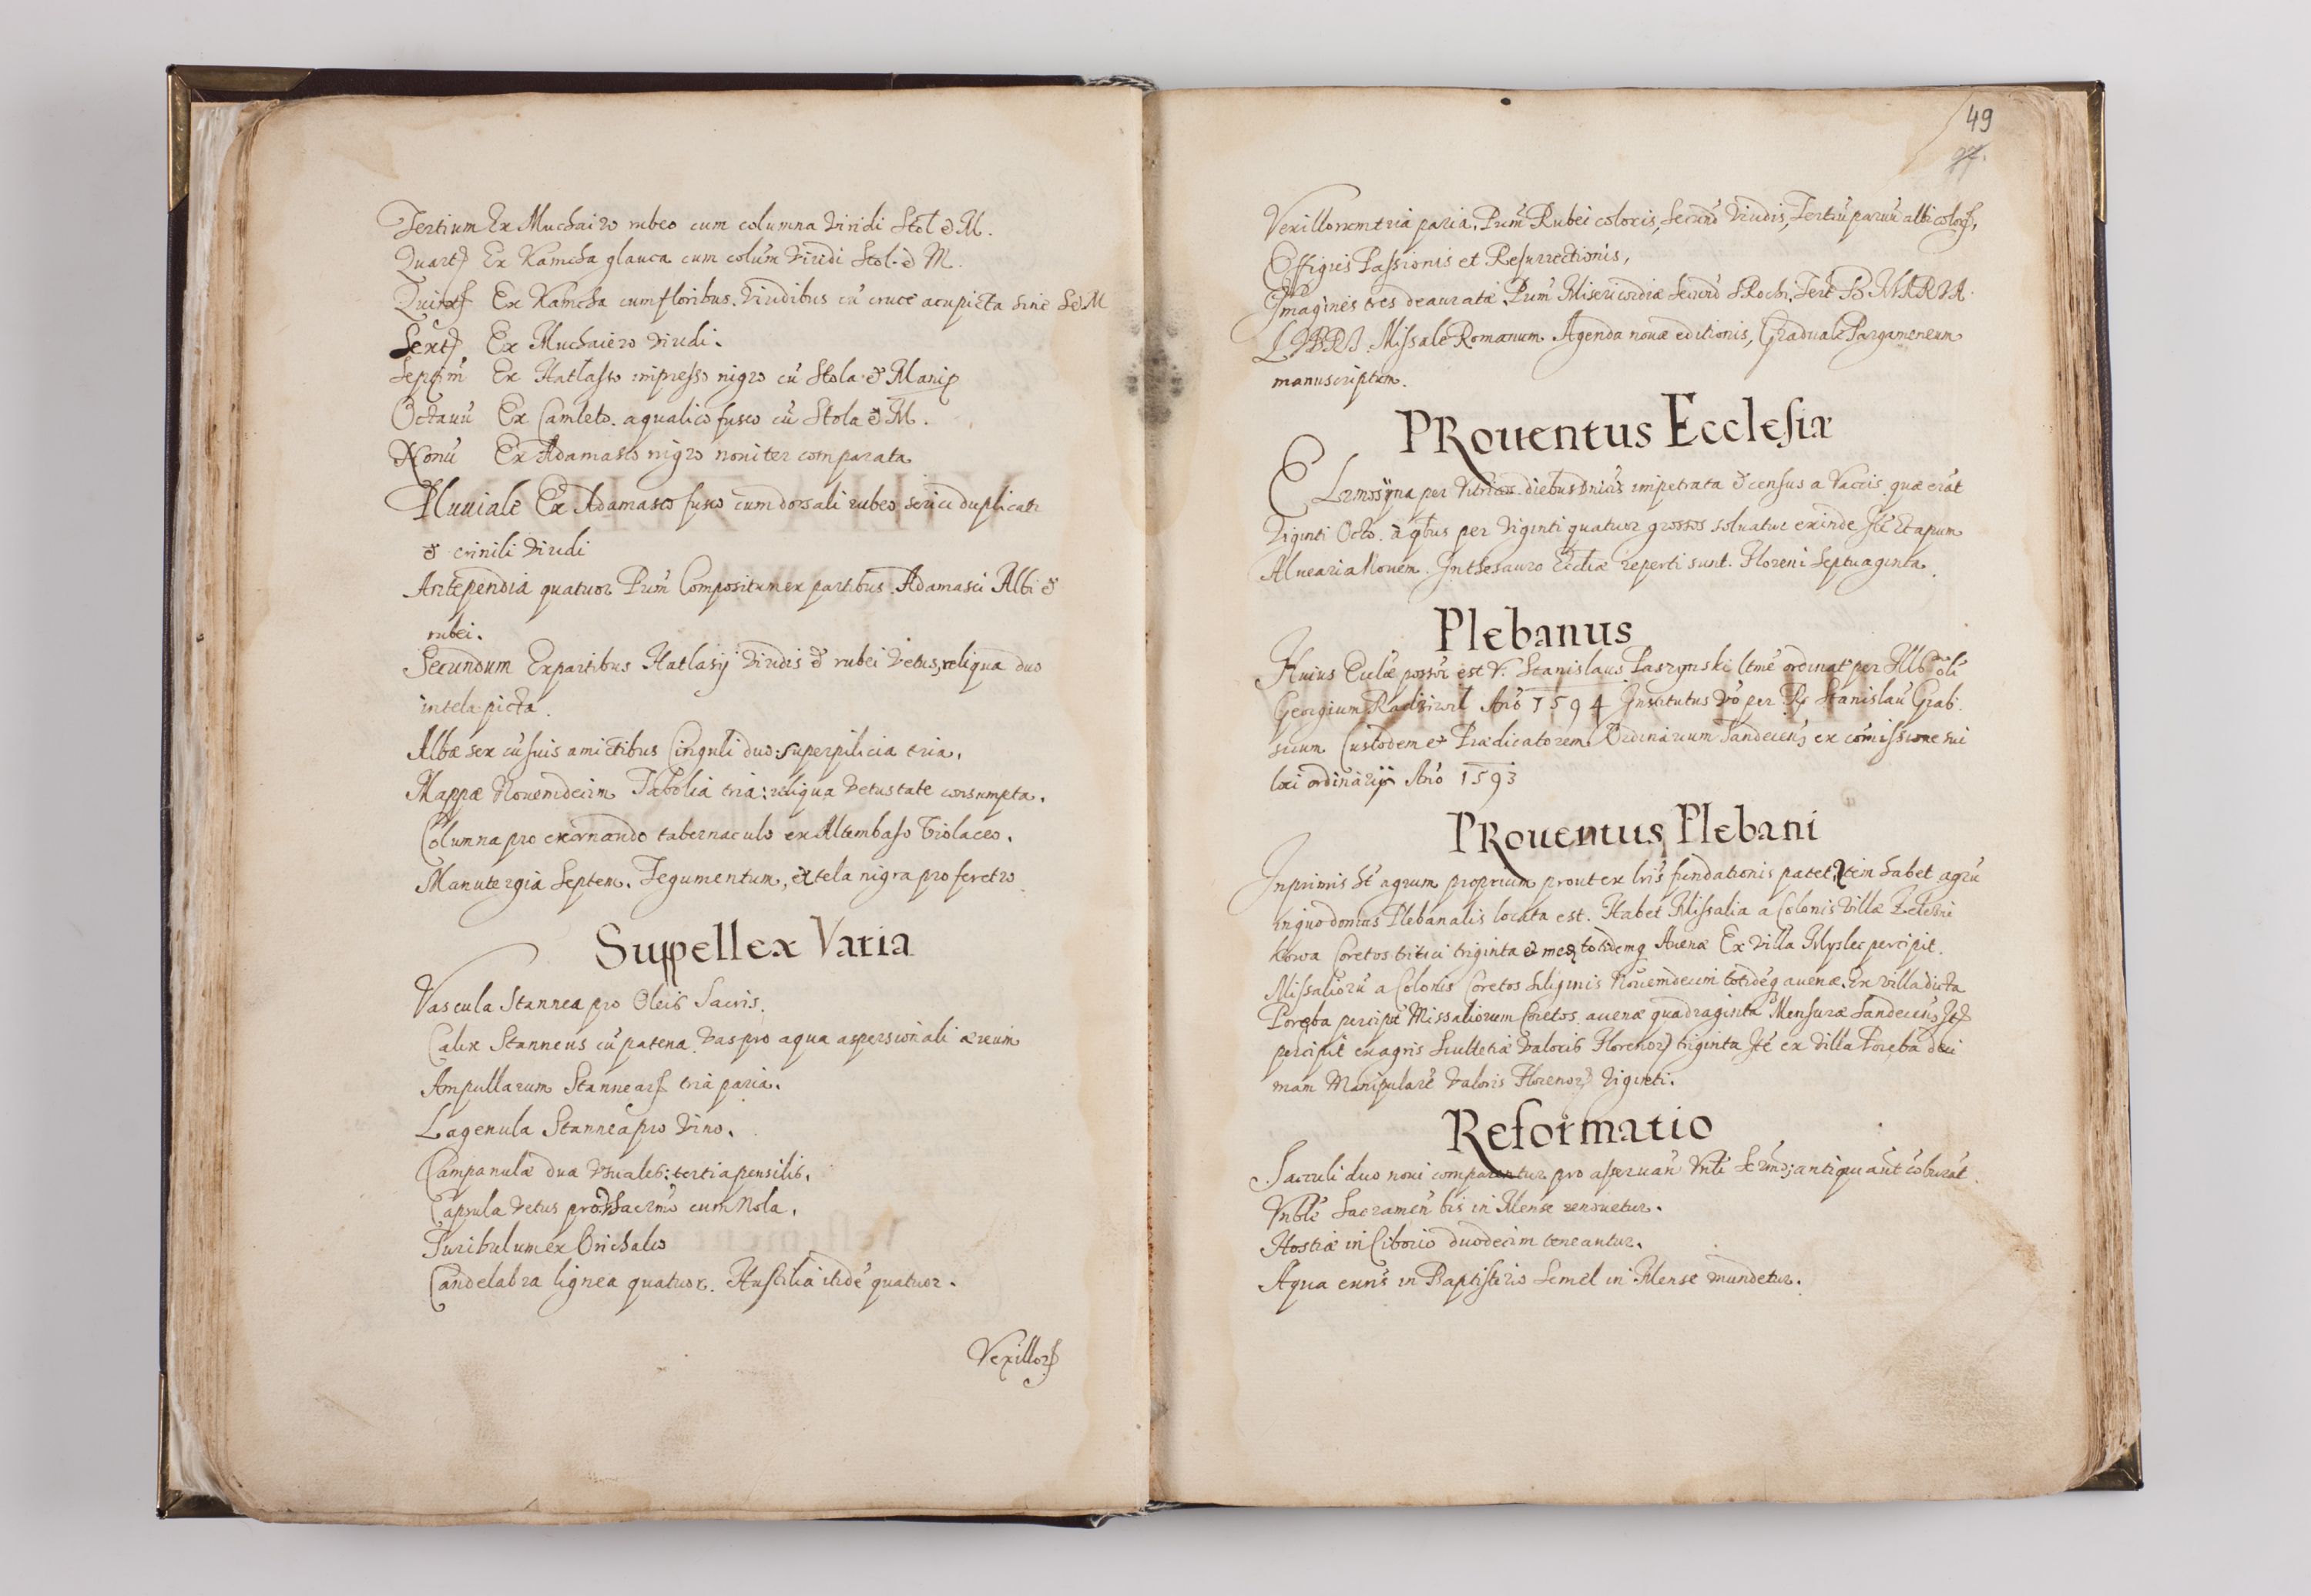 Tertium Ex Muchairo rubeo cum columna Viridi Stol & M.
Quart Ex Kamcha glauca cum colum̃ Viridi Stol. & M.
Quint Ex Kamcha cum floribus Viridibus cū cruce acupicta sine S & M
Sext Ex Muchaiero Viridi.
Septim̃ Ex Hatlasso impresso nigro cū Stola & Manip
Octauū Ex Camleto aqualico fusco cū Stola & M.
Nonū Ex Adamasco nigro noniter comparata
Pluuiale Ex Adamasco fusco cum dorsali rubeo serici duplicati
& crinili Viridi
Antependia quatuor Prim̃ Compositum ex partibus Adamasci Albi &
rubei.
Secundum Ex partibus Hatlasij Viridis & rubei Vetus, reliqua duo
in tela picta.
Albæ sex cū suis amictibus Cinguli duo: Superpilicia tria.
Mappæ Nouemdecim Tobolia tria: reliqua Vetustate consumpta.
Columna pro exornando tabernaculo ex Altembaso Violaceo.
Manutergia Septem. Tegumentum, ex tela nigra pro feretro
Suppellex Varia
Vascula Stannea pro Oleis Sacris.
Calix Stanneus cū patena. Vas pro aqua aspersionali æreum
Ampullarum Stannear tria paria.
Lagenula Stannea pro Vino.
Campanulæ duæ Vsuales: tertia pensilis.
Capsula Vetus pro Sacrmō cum Nola.
Turibulum ex Orichalco
Candelabra lignea quatuor. Hastilia itidē quatuor.
Vexillor
49
27.
Vexillorum tria paria. Prim̃ Rubei coloris, Secund Viridis, Tertiū paruū albi color,
Effigies Passionis et Resurrectionis,
Imagines tres deauratæ Prim̃ Misericordiæ Secund S Rochi, Tert B MARIA
LIBRI. Missale Romanum Agenda nouæ editionis, Graduale Pargameneum
manuscriptum.
PRouentus Ecclesiæ
ELæmosyna per diebus Dnicis impetrata & census a Vaccis quæ erāt
Viginti Octo. à qbus per Viginti quatuor grossos soluatur exinde Itē Et apum
Aluearia Nouem. In thesauro Eccliæ reperti sunt. Floreni Septuaginta.
Plebanus
Huius Eccliæ possor est V. Stanislaus Paszynski ltmē ordinat per
Georgium Radziwil Anō 1594 Institutus Vō per R Stanislaū Grab
sium Custodem et Prædicatorem Ordinarium Sandecens ex comissione sui
loci ordinarij Anō 1593
PRouentus Plebani
Inprimis hēt agrum proprium prout ex lris fundationis patet, Item habet agrū
in quo domus Plebanalis locata est. Habet Missalia a Colonis Villæ
kowa Coretos tritici triginta & totidemq Auenæ Ex Villa Myslec percipit.
Missaliorū a Colonis Coretos siliginis Nouemdecim totidēq auenæ. Ex villa dicta
Poręba percipit Missaliorum Coretos auenæ quadraginta Mensuræ Sandecens It
percipit ex agris Scultetiæ Valoris Florenor triginta Itē ex Villa Poręba deci
mam Manipularē Valoris Florenor Viginti.
Reformatio
Sacculi duo noui comparentur pro asseruan Vnli Scrmō; antiqui aūt coburāt.
Vnble Sacramen bis in Mense renouetur.
Hostiæ in Ciborio duodecim teneantur.
Aqua exns in Baptisterio Semel in Mense mundetur.